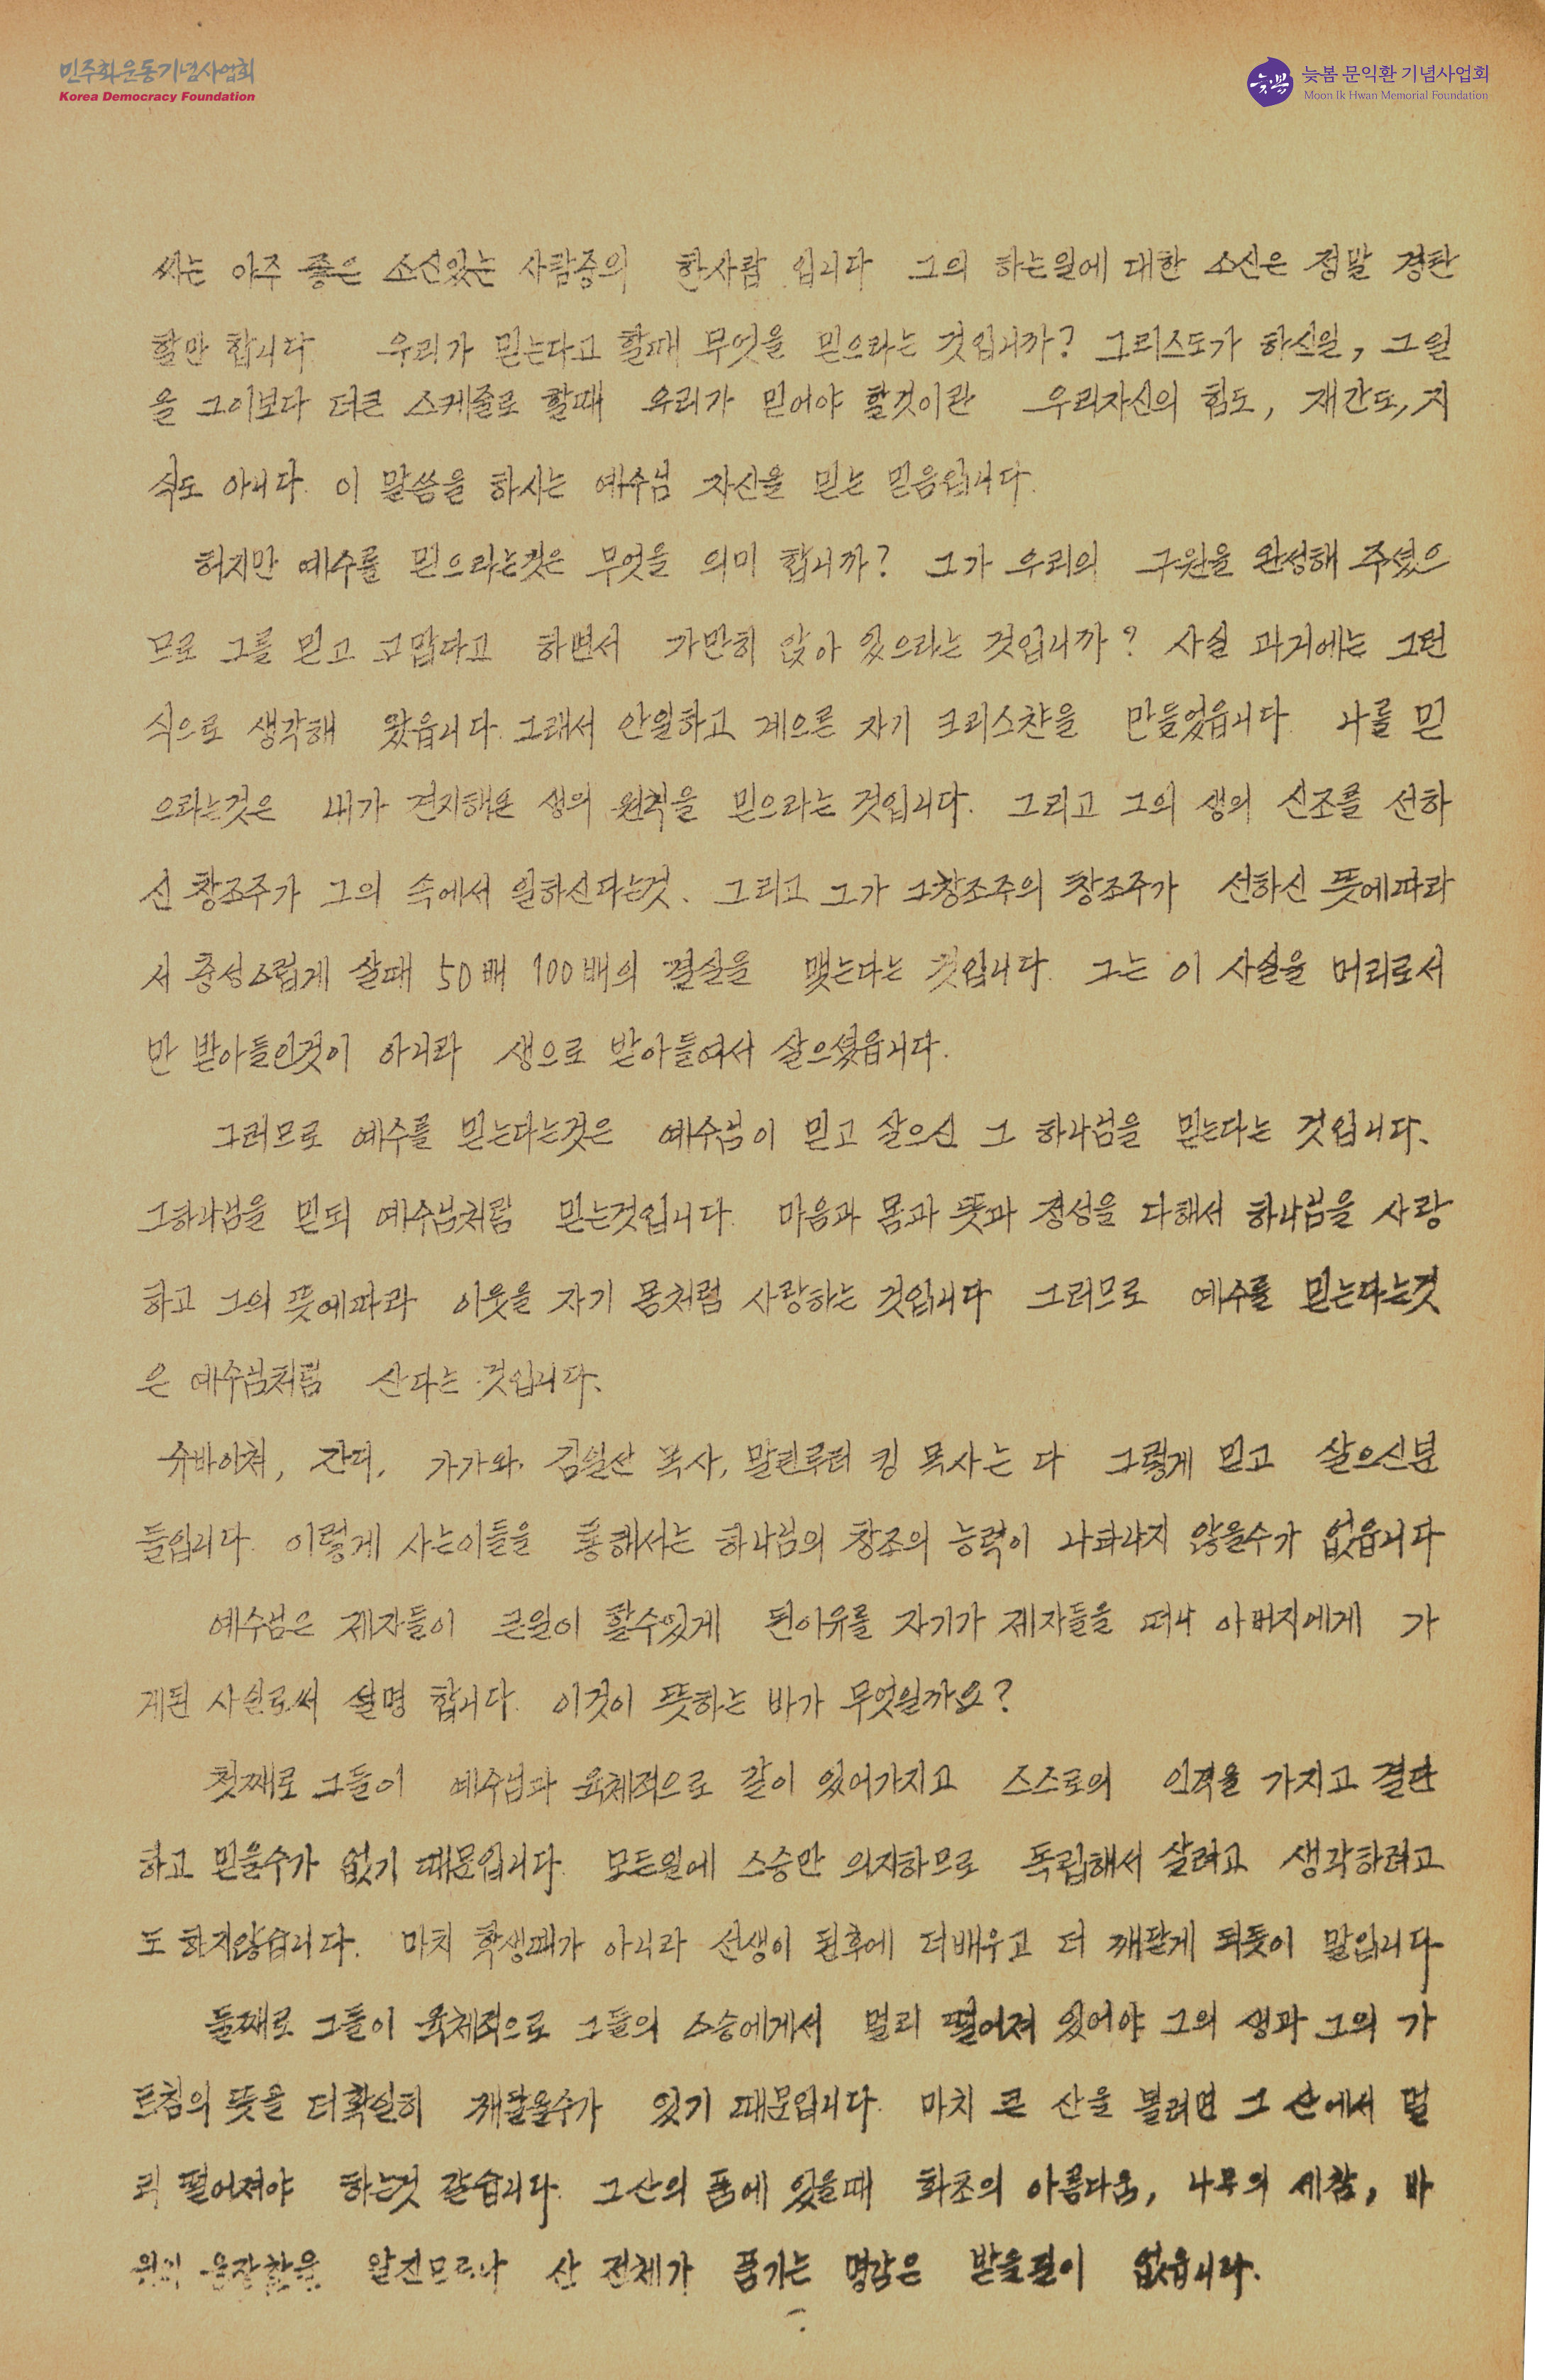 민주화운동기념사업회
Korea Democracy Foundation
늦봄
늦봄 문익환 기념사업회
Moon Ik Hwan Memorial Foundation
씨는 아주 좋은 소신있는 사람중의 한사람 입니다 그의 하는일에 대한 소신은 정말 경탄
할만 합니다 우리가 믿는다고 할때 무엇을 믿으라는 것입니까? 그리스도가 하신일, 그일
을 그이보다 더큰 스케줄로 할때 우리가 믿어야 할것이란 우리자신의 힘도, 재간도, 지
식도 아니다. 이 말씀을 하시는 예수님 자신을 믿는 믿음입니다.
허지만 예수를 믿으라는것은 무엇을 의미 합니까? 그가 우리의 구원을 완성해 주셨으
므로 그를 믿고 고맙다고 하면서 가만히 앉아 있으라는 것입니까? 사실 과거에는 그런
식으로 생각해 왔읍니다. 그래서 안일하고 게으른 자기 크리스챤을 만들었읍니다. 나를 믿
으라는것은 내가 견지해온 생의 원칙을 믿으라는 것입니다. 그리고 그의 생의 신조를 선하
신 창조주가 그의 속에서 일하신다는것. 그리고 그가 그창조주의 창조주가 선하신 뜻에따라
서 충성스럽게 살때 50배 100배의 결실을 맺는다는 것입니다. 그는 이 사실을 머리로서
만 받아들인것이 아니라 생으로 받아들여서 살으셨읍니다.
그러므로 예수를 믿는다는것은 예수님이 믿고 살으신 그 하나님을 믿는다는 것입니다.
그하나님을 믿되 예수님처럼 믿는것입니다. 마음과 몸과 뜻과 정성을 다해서 하나님을 사랑
하고 그의 뜻에따라 이웃을 자기 몸처럼 사랑하는 것입니다 그러므로 예수를 믿는다는것
은 예수님처럼 산다는 것입니다.
슈바이쳐, 간디, 가가와, 김일선 목사, 말틴루터 킹 목사는 다 그렇게 믿고 살으신분
들입니다. 이렇게 사는이들을 통해서는 하나님의 창조의 능력이 나타나지 않을수가 없읍니다
예수님은 제자들이 큰일이 할수있게 된이유를 자기가 제자들을 떠나 아버지에게 가
게된 사실로써 설명 합니다. 이것이 뜻하는 바가 무엇일까요?
첫째로 그들이 예수님과 육체적으로 같이 있어가지고 스스로의 인격을 가지고 결단
하고 믿을수가 없기 때문입니다. 모든일에 스승만 의지하므로 독립해서 살려고 생각하려고
도 하지않습니다. 마치 학생때가 아니라 선생이 된후에 더배우고 더 깨닫게 되듯이 말입니다
둘째로 그들이 육체적으로 그들의 스승에게서 멀리 떨어져 있어야 그의 생과 그의 가
르침의 뜻을 더확실히 깨달을수가 있기 때문입니다. 마치 큰 산을 볼려면 그 산에서 멀
리 떨어져야 하는것 같습니다. 그산의 품에 있을때 화초의 아름다움, 나무의 세참, 바
위의 웅장함을 알진모르나 산 전체가 품기는 영감은 받을길이 없읍니다.